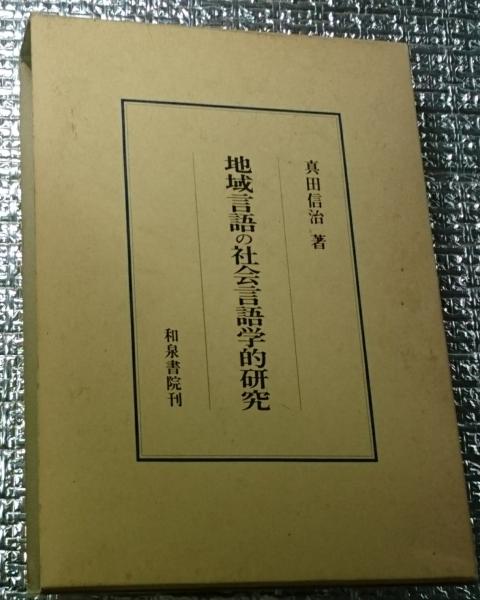 真田信治 著
地域言語の社会言語学的研究
和泉書院刊